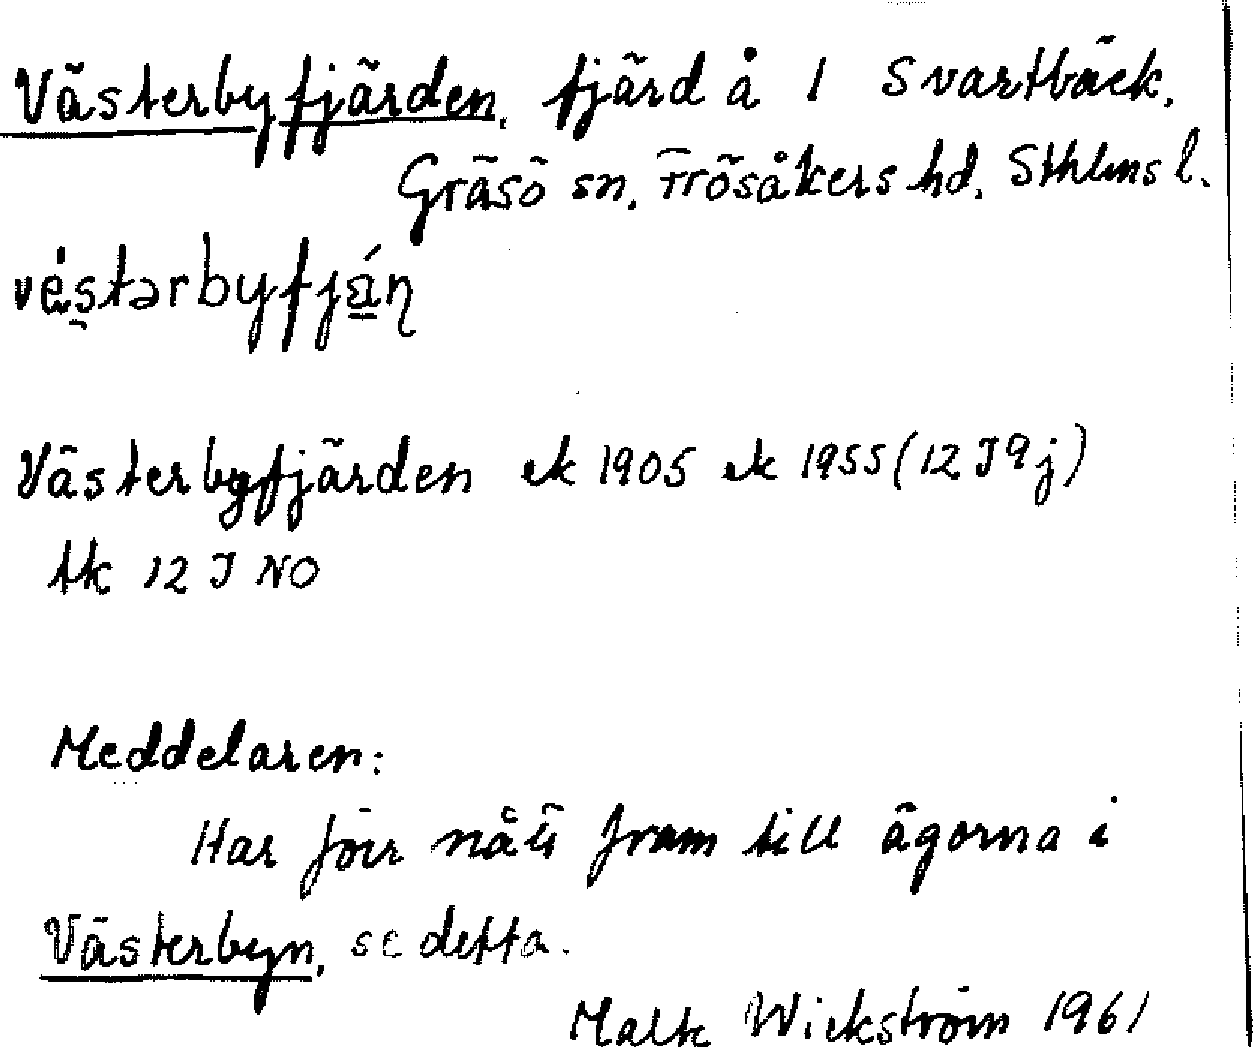 Västerbyfjärden, fjärd å 1 Svartbäck,
Gräsö sn, Frösåkers hd, Sthlms l.
vèstərbyfjá̱ɳ
Västerbyfjärden ek 1905 ek 1955 (12 J 9 j)
tk 12 J NO
Meddelaren:
Har förr nått fram till ägorna i
Västerbyn, se detta.
Malte Wickström 1961